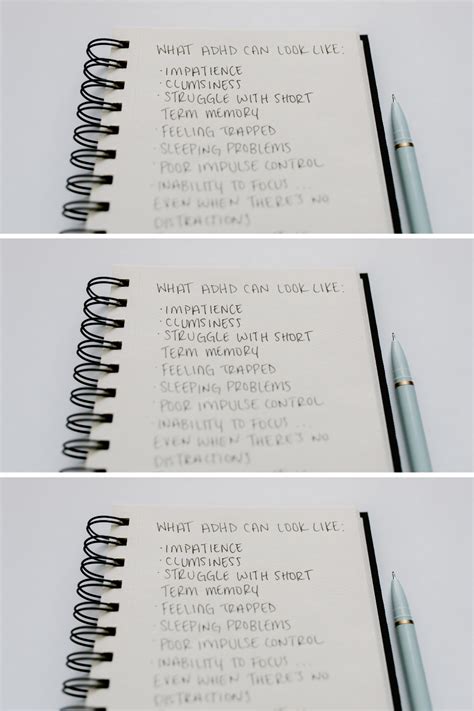 WHAT ADHD CAN LOOK LIKE:
· IMPATIENCE
· CLUMSINESS
· STRUGGLE WITH SHORT
TERM MEMORY
· FEELING TRAPPED
· SLEEPING PROBLEMS
· POOR IMPULSE CONTROL
· INABILITY TO FOCUS ...
EVEN WHEN THERE'S NO
DISTRACTIONS
WHAT ADHD CAN LOOK LIKE:
· IMPATIENCE
· CLUMSINESS
· STRUGGLE WITH SHORT
TERM MEMORY
· FEELING TRAPPED
· SLEEPING PROBLEMS
· POOR IMPULSE CONTROL
· INABILITY TO FOCUS ...
EVEN WHEN THERE'S NO
DISTRACTIONS
WHAT ADHD CAN LOOK LIKE:
· IMPATIENCE
· CLUMSINESS
· STRUGGLE WITH SHORT
TERM MEMORY
· FEELING TRAPPED
· SLEEPING PROBLEMS
· POOR IMPULSE CONTROL
· INABILITY TO FOCUS ...
EVEN WHEN THERE'S NO
DISTRACTIONS